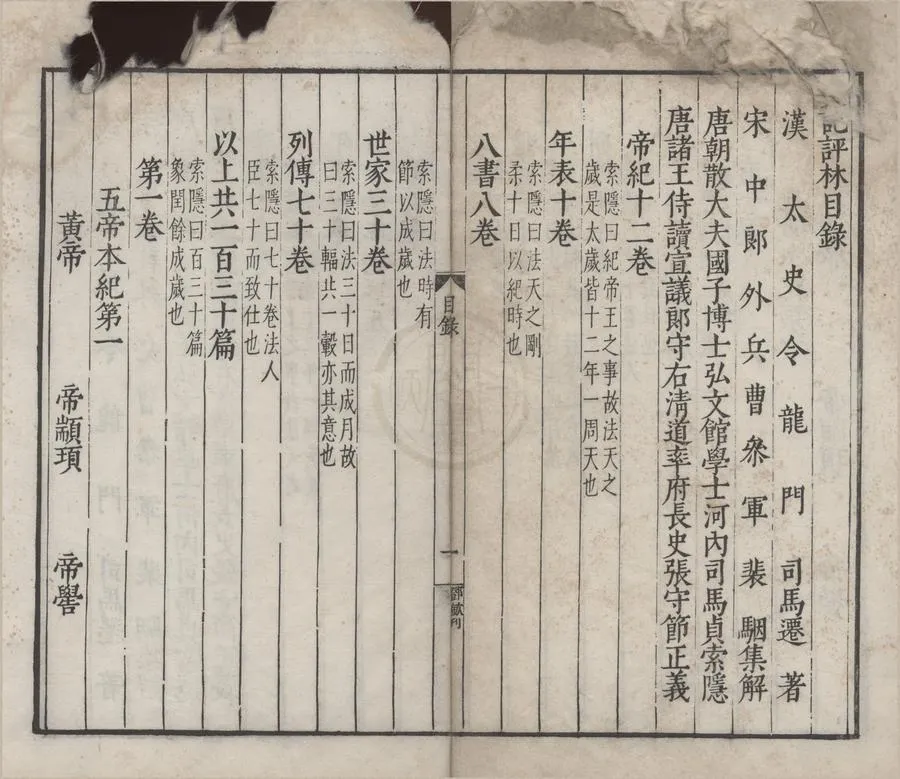 記評林目錄
漢太史令龍門司馬遷著
宋中郎外兵曹叅軍裴駰集解
唐朝散大夫國子博士弘文館學士河內司馬貞索隱
唐諸王侍讀宣議郎守右清道率府長史張守節正義
帝紀十二卷
索隱曰紀帝王之事故法天之
歲是太歲皆十二年一周天也
年表十卷
索隱曰法天之剛
柔十日以紀時也
八書八卷
索隱曰法時有
節以成歲也
目錄
一
世家三十卷
索隱曰法三十日而成月故
曰三十輻共一轂亦其意也
列傳七十卷
索隱曰七十卷法人
臣七十而致仕也
以上共一百三十篇
索隱曰百三十篇
象閏餘成歲也
第一卷
五帝本紀第一
黃帝 帝顓頊 帝嚳